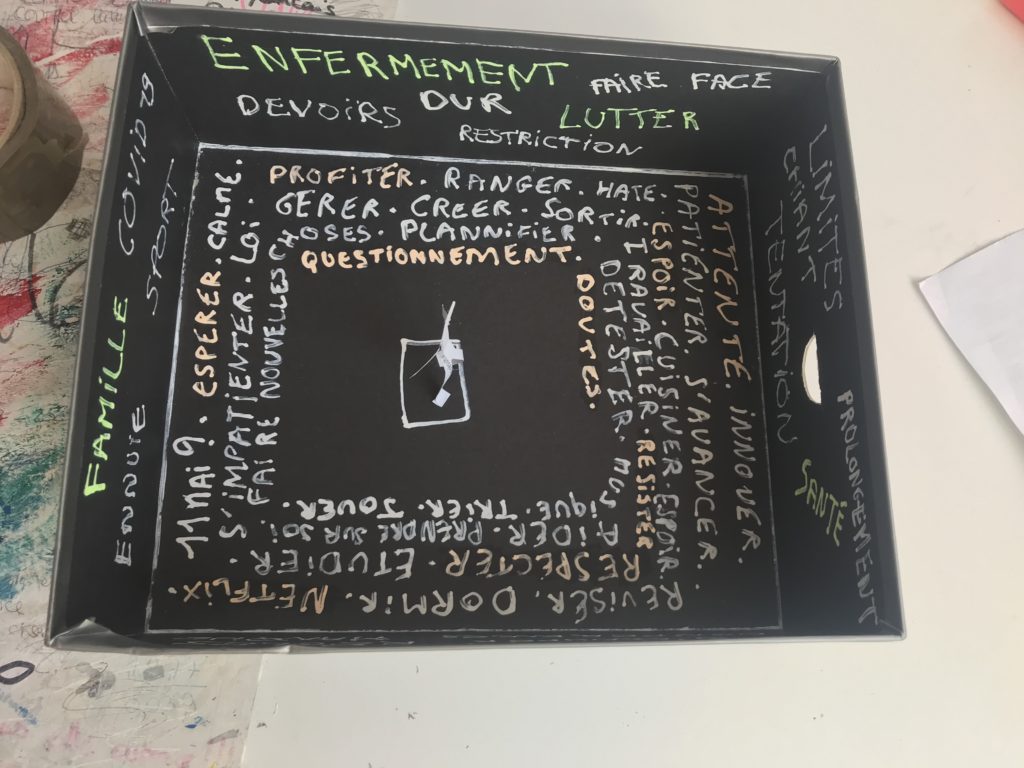 ENFERMEMENT FAIRE FACE
DEVOIRS DUR LUTTER
RESTRICTION
LIMITES
CHIANT
TENTATION
SANTÉ
PROLONGEMENT
COVID
SPORT
FAMILLE
ENNUIE
PROFITER. RANGER. HATE.
GERER. CREER. SORTIR.
CHOSES. PLANNIFIER.
QUESTIONNEMENT.
ATTENTE. INNOVER.
PATIENTER. S'AVANCER.
ESPOIR. CUISINER. ESPOIR.
TRAVAILLER. RESISTER
DETESTER. MUS
DOUTES.
REVISER. DORMIR. NETFLIX.
RESPECTER. ETUDIER.
AIDER. PRENDRE SUR SOI.
IQUE. TRIER. JOUER.
11 MAI 9. ESPERER. CALME.
S'IMPATIENTER. LOI.
FAIRE NOUVELLES